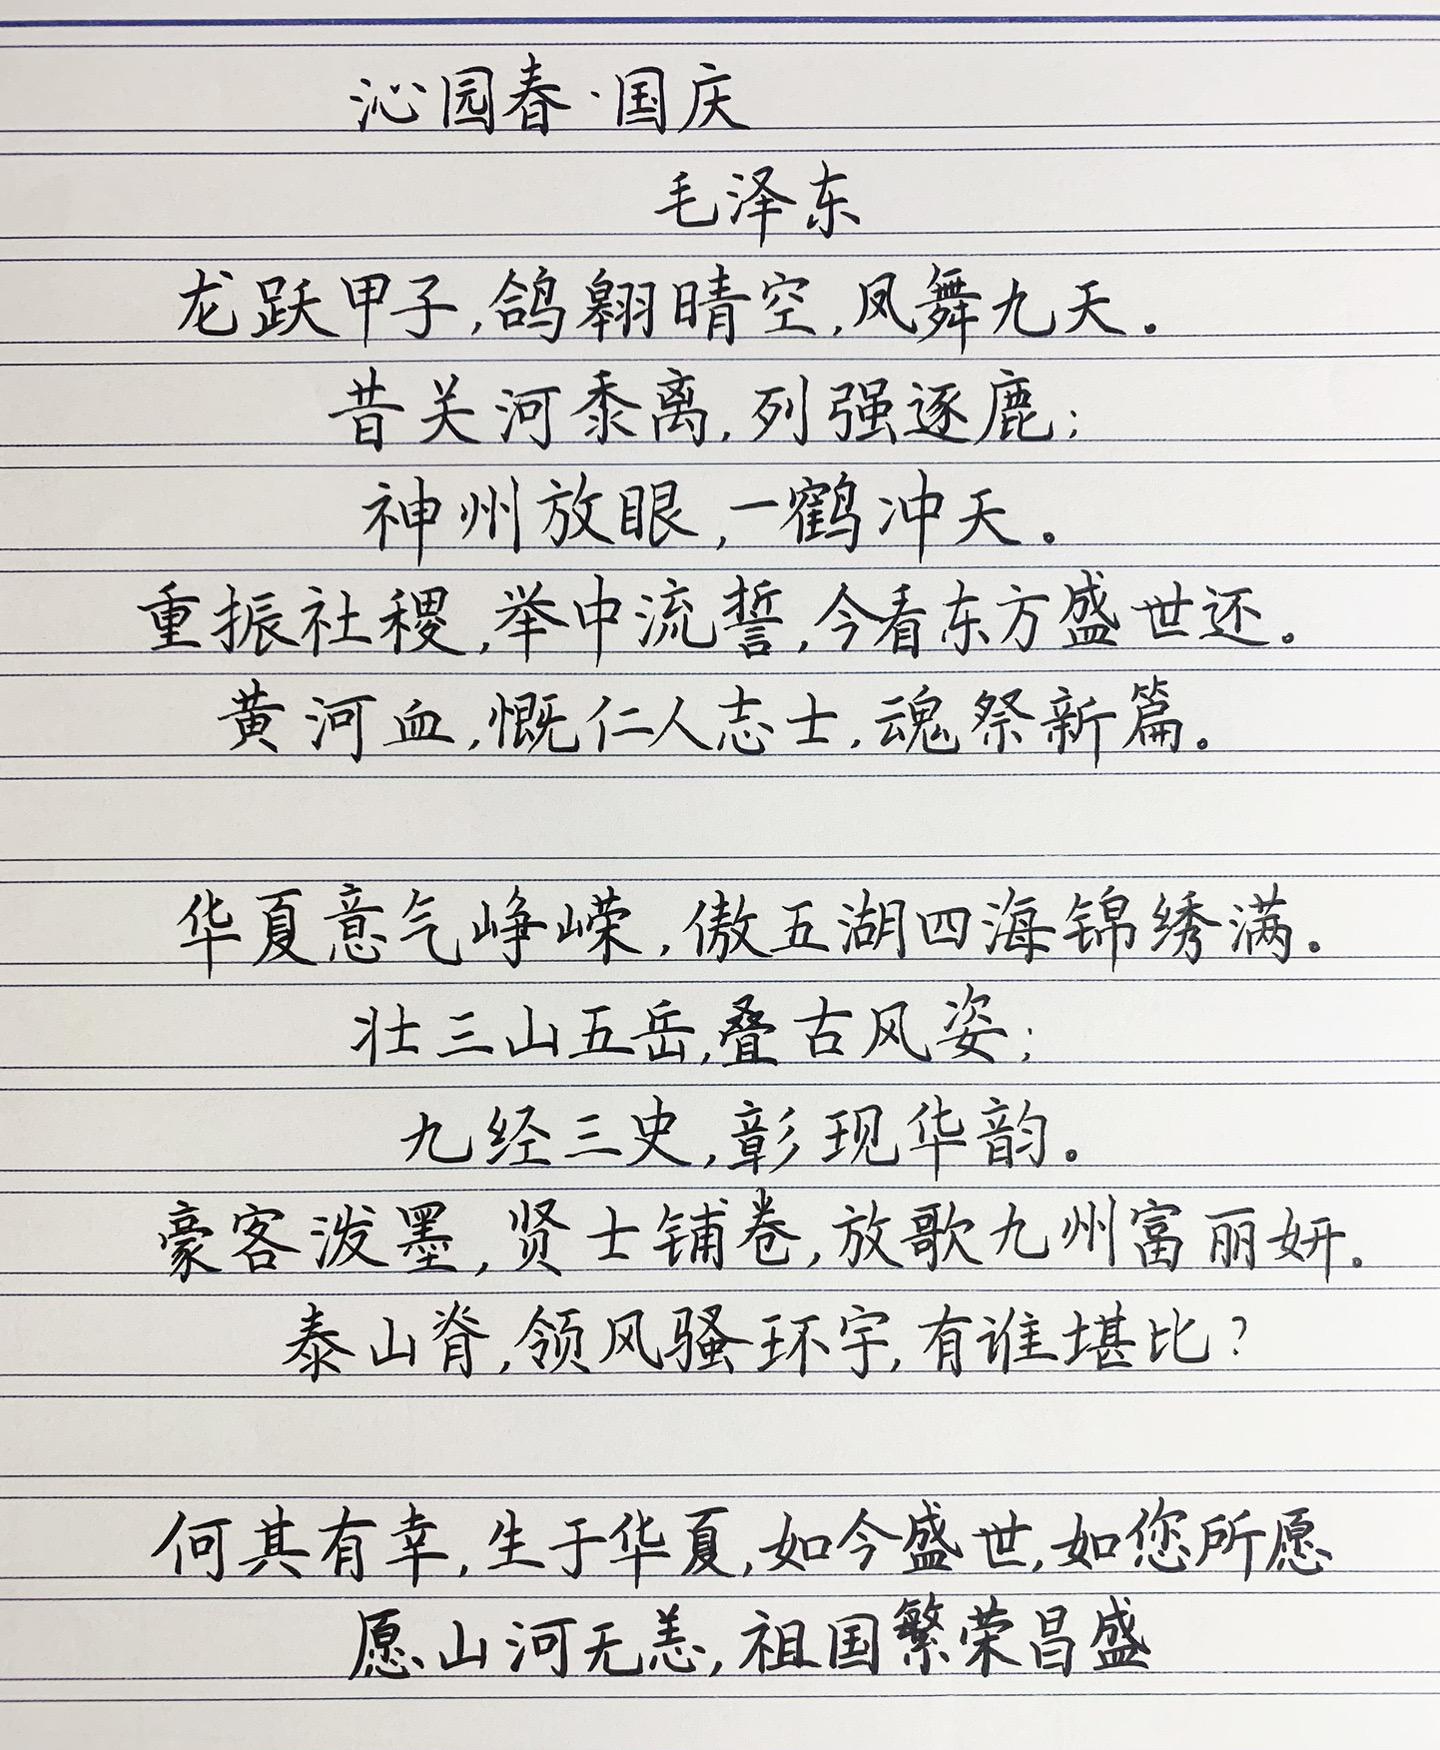 沁园春·国庆
毛泽东
龙跃甲子,鸽翱晴空,凤舞九天。
昔关河黍离,列强逐鹿;
神州放眼,一鹤冲天。
重振社稷,举中流誓,今看东方盛世还。
黄河血,慨仁人志士,魂祭新篇。
华夏意气峥嵘,傲五湖四海锦绣满。
壮三山五岳,叠古风姿;
九经三史,彰现华韵。
豪客泼墨,贤士铺卷,放歌九州富丽妍。
泰山脊,领风骚环宇,有谁堪比?
何其有幸,生于华夏,如今盛世,如您所愿
愿山河无恙,祖国繁荣昌盛